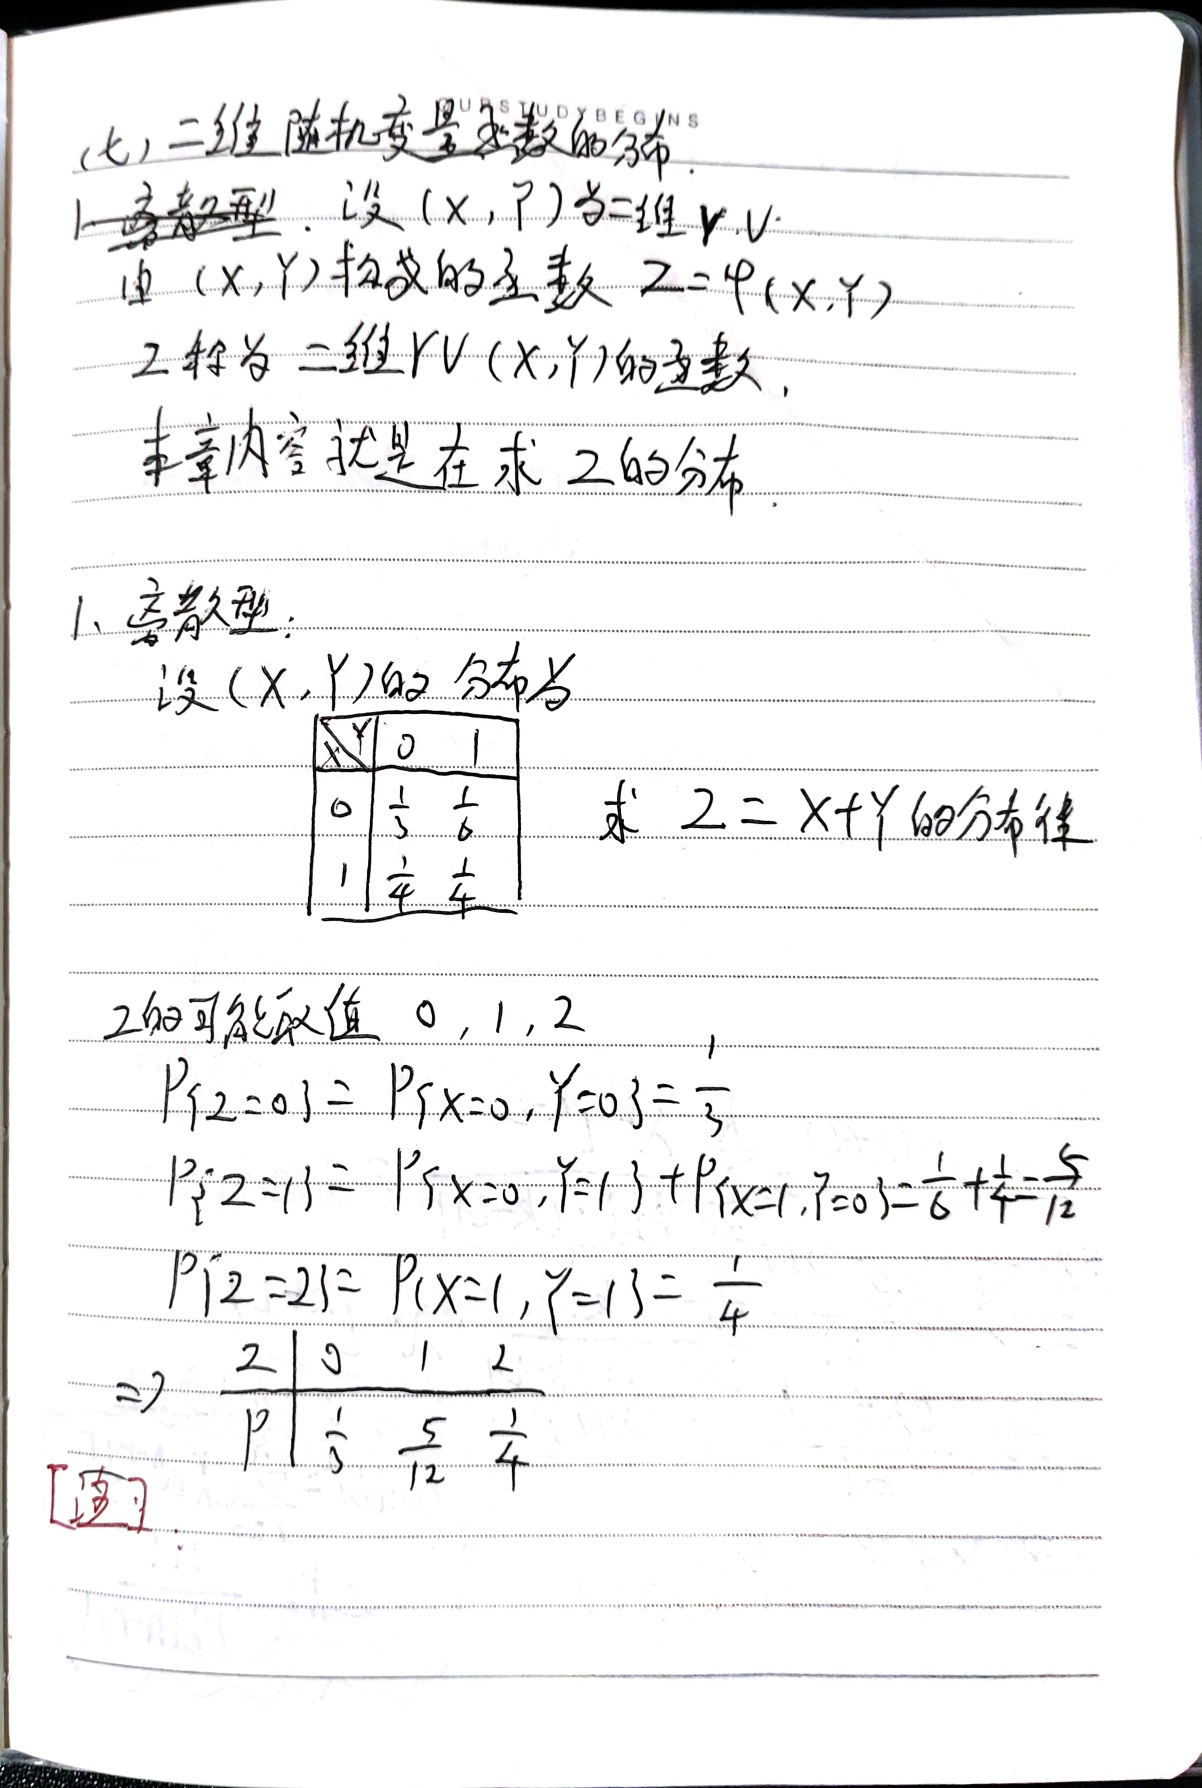 OURSTUDYBEGINS
(七) 二维随机变量函数的分布.
1 离散型. 设(X,Y)为二维r.v.
由(X,Y)构成的函数 Z=φ(X,Y)
Z称为二维rv(X,Y)的函数.
本章内容就是在求Z的分布.
1、离散型:
设(X,Y)的分布为
X\Y 0 1
0 1/3 1/6
1 1/4 1/4
求 Z=X+Y的分布律
Z的可能取值 0,1,2
P{Z=0}=P{X=0,Y=0}=1/3
P{Z=1}=P{X=0,Y=1}+P{X=1,Y=0}=1/6+1/4=5/12
P{Z=2}=P{X=1,Y=1}=1/4
=> Z 0 1 2
P 1/3 5/12 1/4